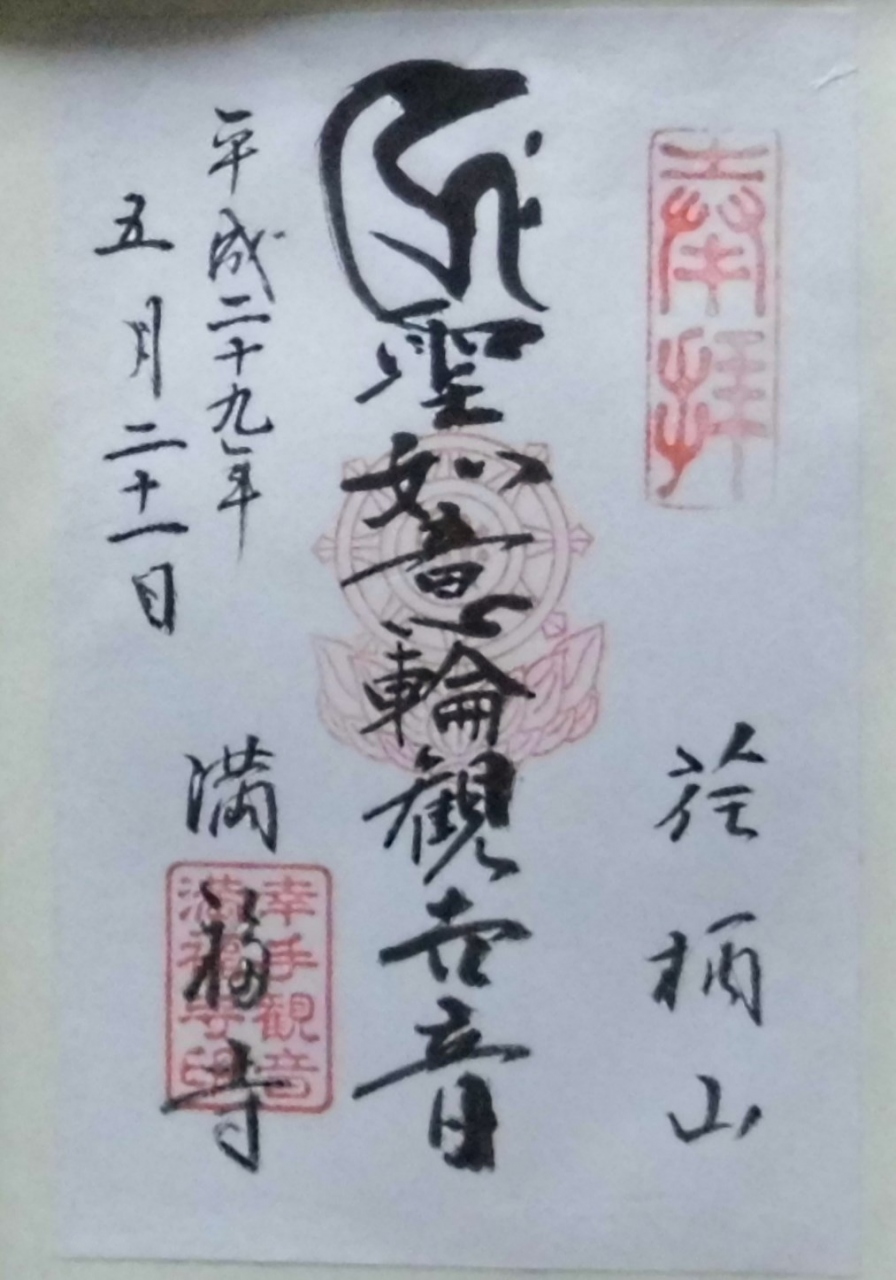 奉拝
荏柄山
聖如意輪観世音
平成二十九年
五月二十一日
満福寺
幸手観音
満福寺印